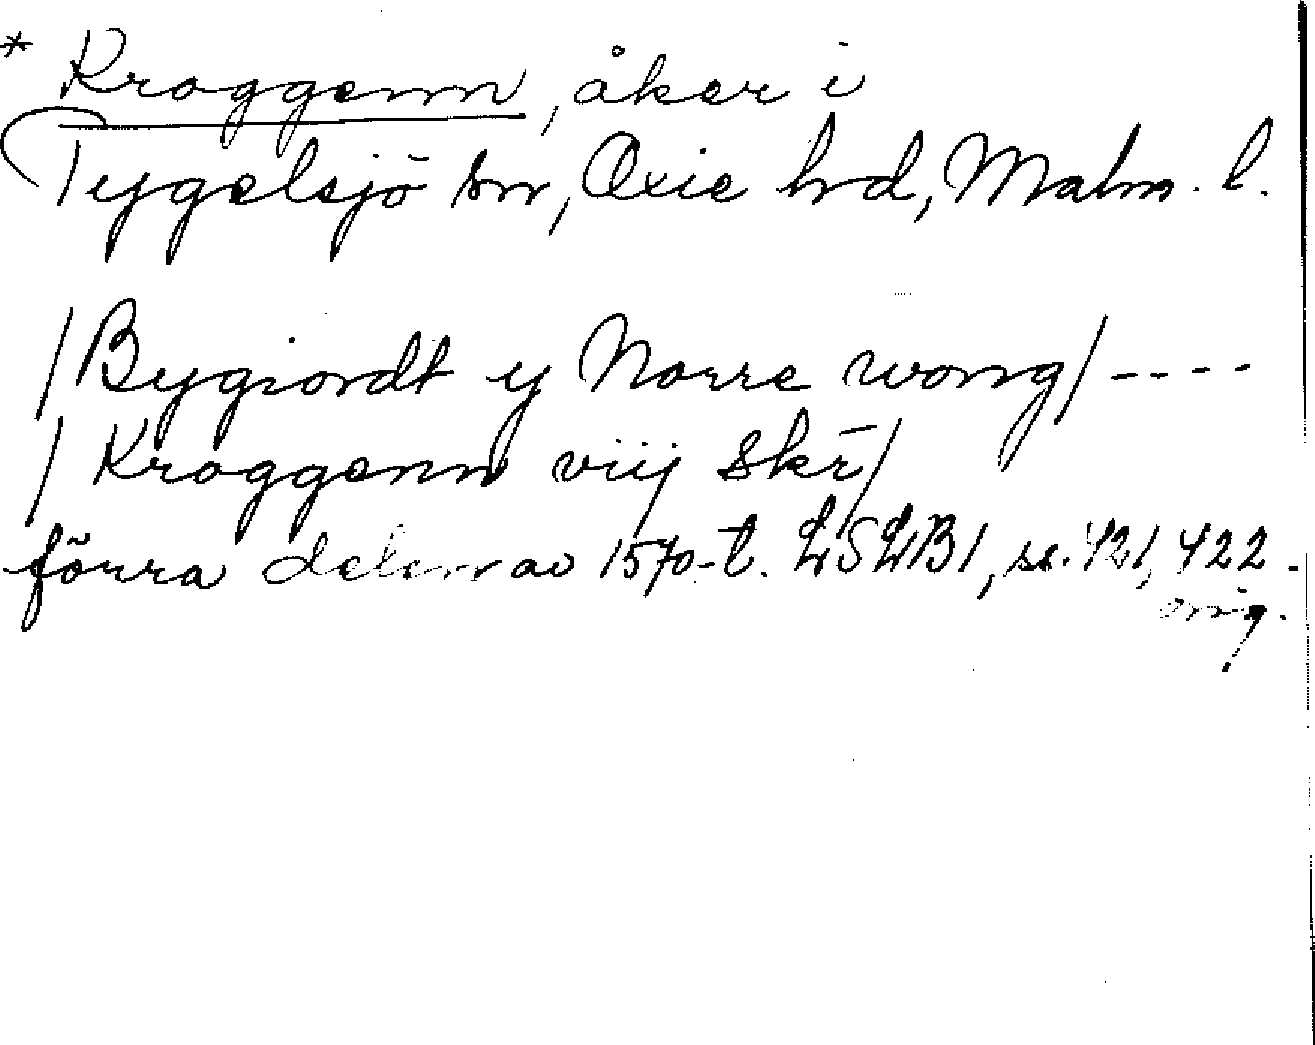 * Kroggenn, åker i
Tygelsjö sn, Oxie hd, Malm. l.
/Bygiordt y Norre wong/ ----
/Kroggenn viij skr̄/
förra delen av 1570-t. LSLB1, ss. 421, 422.
orig.